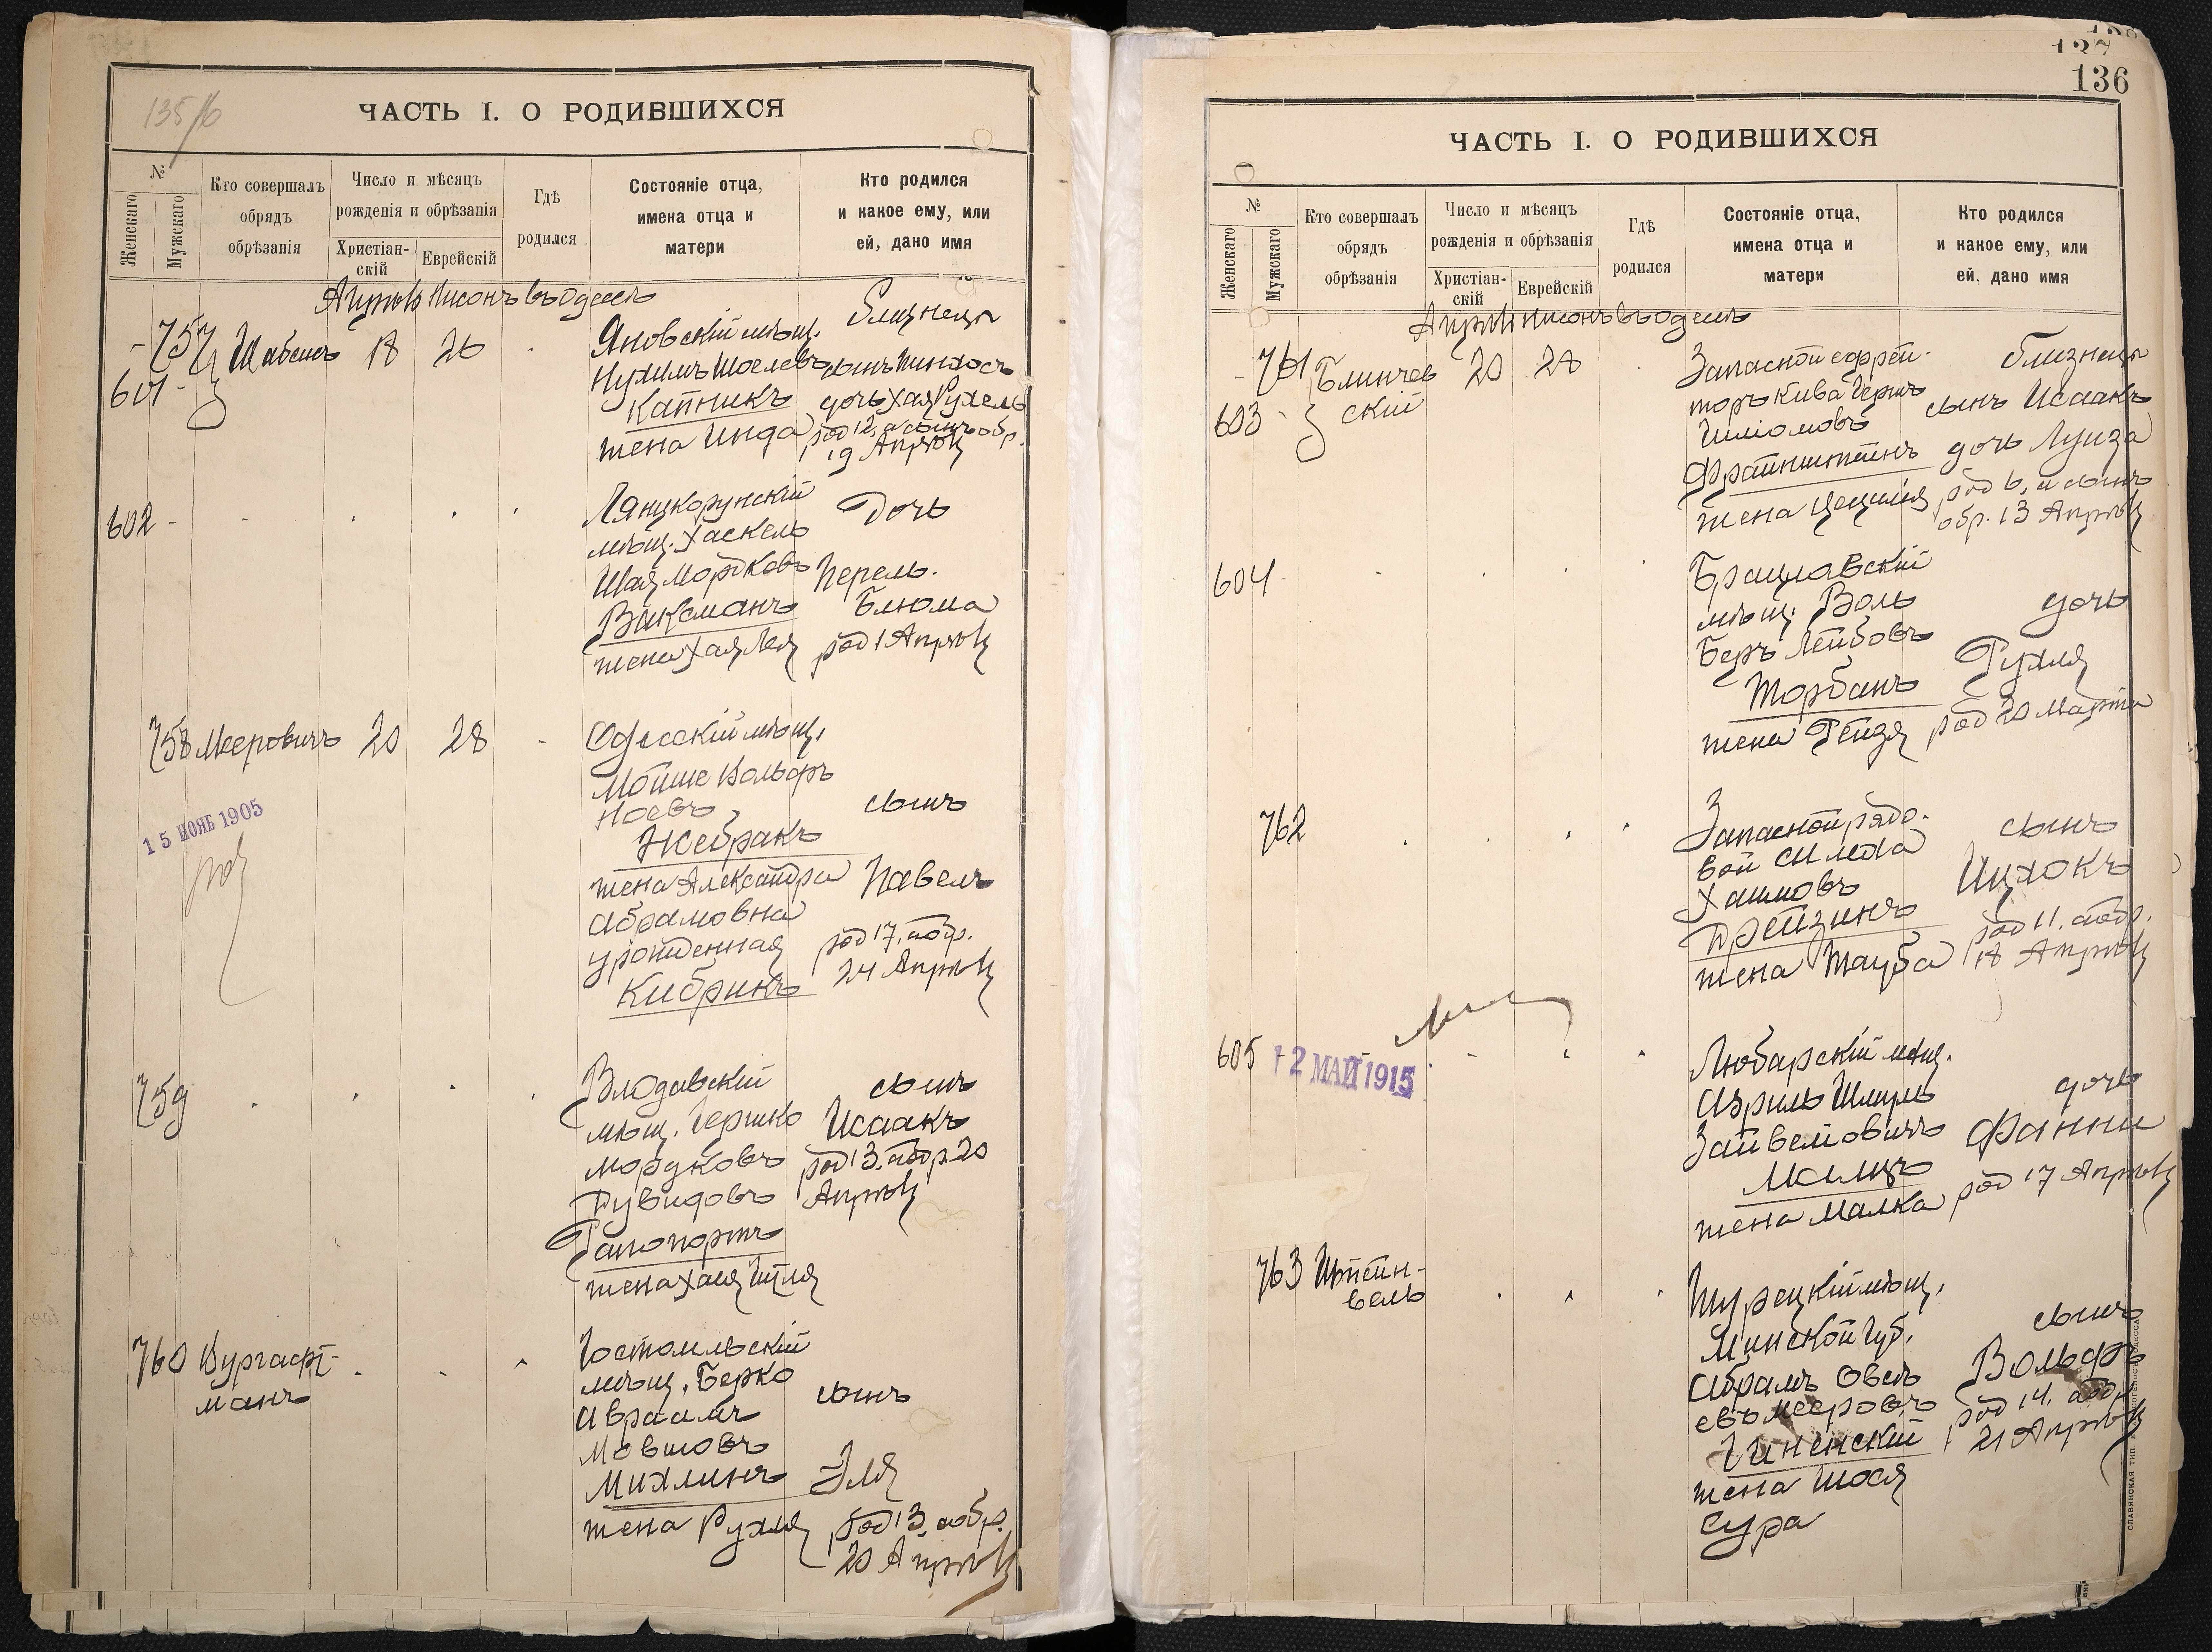 135/б
ЧАСТЬ I. О РОДИВШИХСЯ
№
Женскаго
Мужскаго
Кто совершалъ
обрядъ
обрѣзанія
Число и мѣсяцъ
рожденія и обрѣзанія
Христіан-
скій
Еврейскій
Гдѣ
родился
Состояніе отца,
имена отца и
матери
Кто родился
и какое ему, или
ей, дано имя
Апрѣль Нисонъ въ Одессѣ
757
601
Шабсисъ
18
26
Яновскій мѣщ.
Нухимъ Шоелевъ
Капникъ
жена Инда
близнецы
сынъ Пинхосъ
дочь Хая Рухель
род 12, и сынъ обр.
19 Апрѣля
602
Лянцкорунскій
мѣщ. Хаскель
Шая Мордковъ
Ваксманъ
жена Хая Лея
Дочь
Перель.
Блюма
род 1 Апрѣля
758
Мееровичъ
20
28
15 НОЯБ 1905
Одесскій мѣщ.
Мойше Вольфъ
Ноевъ
Жебракъ
жена Александра
Абрамовна
урожденная
Кибрикъ
сынъ
Павелъ
род 17, а обр.
24 Апрѣля
759
Влодавскій
мѣщ. Гершко
Мордковъ
Дувидовъ
Рапопортъ
жена Хая Итля
сынъ
Исаакъ
род 13, а обр. 20
Апрѣля
760
Вургафт-
манъ
Гостомльскій
мѣщ. Берко
Авраамъ
Мовшовъ
Михлинъ
жена Рухля
сынъ
Эля
род 13, а обр.
20 Апрѣля
136
ЧАСТЬ I. О РОДИВШИХСЯ
№
Женскаго
Мужскаго
Кто совершалъ
обрядъ
обрѣзанія
Число и мѣсяцъ
рожденія и обрѣзанія
Христіан-
скій
Еврейскій
Гдѣ
родился
Состояніе отца,
имена отца и
матери
Кто родился
и какое ему, или
ей, дано имя
Апрѣль Нисонъ въ Одессѣ
761
603
Блинчев
скій
20
28
Запасной ефрей-
торъ Кива Гершъ
Шліомовъ
Файнштейнъ
жена Цецилія
близнецы
сынъ Исаакъ
дочь Луиза
род 6, и сынъ
обр. 13 Апрѣля
604
Брацлавскій
мѣщ. Воль
Беръ Лейбовъ
Торбанъ
жена Рейзя
дочь
Рухля
род 20 Марта
762
Запасной рядо-
вой Симха
Хаимовъ
Дрейзинъ
жена Тауба
сынъ
Ицхокъ
род 11, а обр.
18 Апрѣля
605
12 МАЙ 1915
Любарскій мѣщ.
Азриль Шмуль
Зайвеловичъ
Малицъ
жена Малка
дочь
Фанни
род 17 Апрѣля
763
Штейн-
вель
Турецкій мѣщ.
Минской губ.
Абрамъ Овсѣ
евъ Мееровъ
Чиненскій
жена Шося
Сура
сынъ
Вольфъ
род 14, а обр.
21 Апрѣля